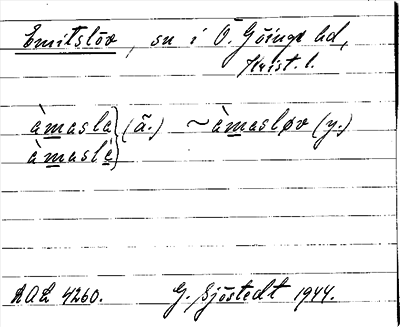 Emitslöv, sn i Ö. Göinge hd,
Krist. l.
àmasla } (ä.) ~ àmasløv (y.)
àmaslè
AOL 4260. G. Sjöstedt 1944.